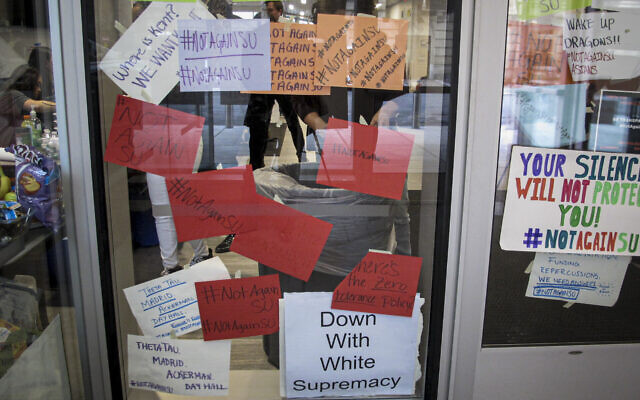 Where is Kent?
WE WANT
#NOTAGAINSU
#NOTAGAINSU
NOT AGAIN
NOTAGAINS
#NOTAGAINS
NOTAGAINSU
TAGAINSU
#NOTAGAINSU
#NOTAGAINSU
#NOTAGAINSU
#NOTAGAIN
WAKE UP
DRAGONS!!
#NOTAGAINSU
ASIANS
#NOT
AGAIN
SU
#NOTAGAINSU
#NotAgainSU
YOUR SILENCE
WILL NOT PROTEC
YOU!
#NOTAGAINSU
FUNDING
REPERCUSSIONS.
WE NEED
#NOTAGAINSU
THETA TAU.
MADRID
ACKERMAN.
DAY HALL.
#NotAgain
SU
#NotAgainSU
There's
the Zero
Tolerance policy?
THETA TAU.
MADRID.
ACKERMAN.
DAY HALL
#NOTAGAINSU
Down
With
White
Supremacy